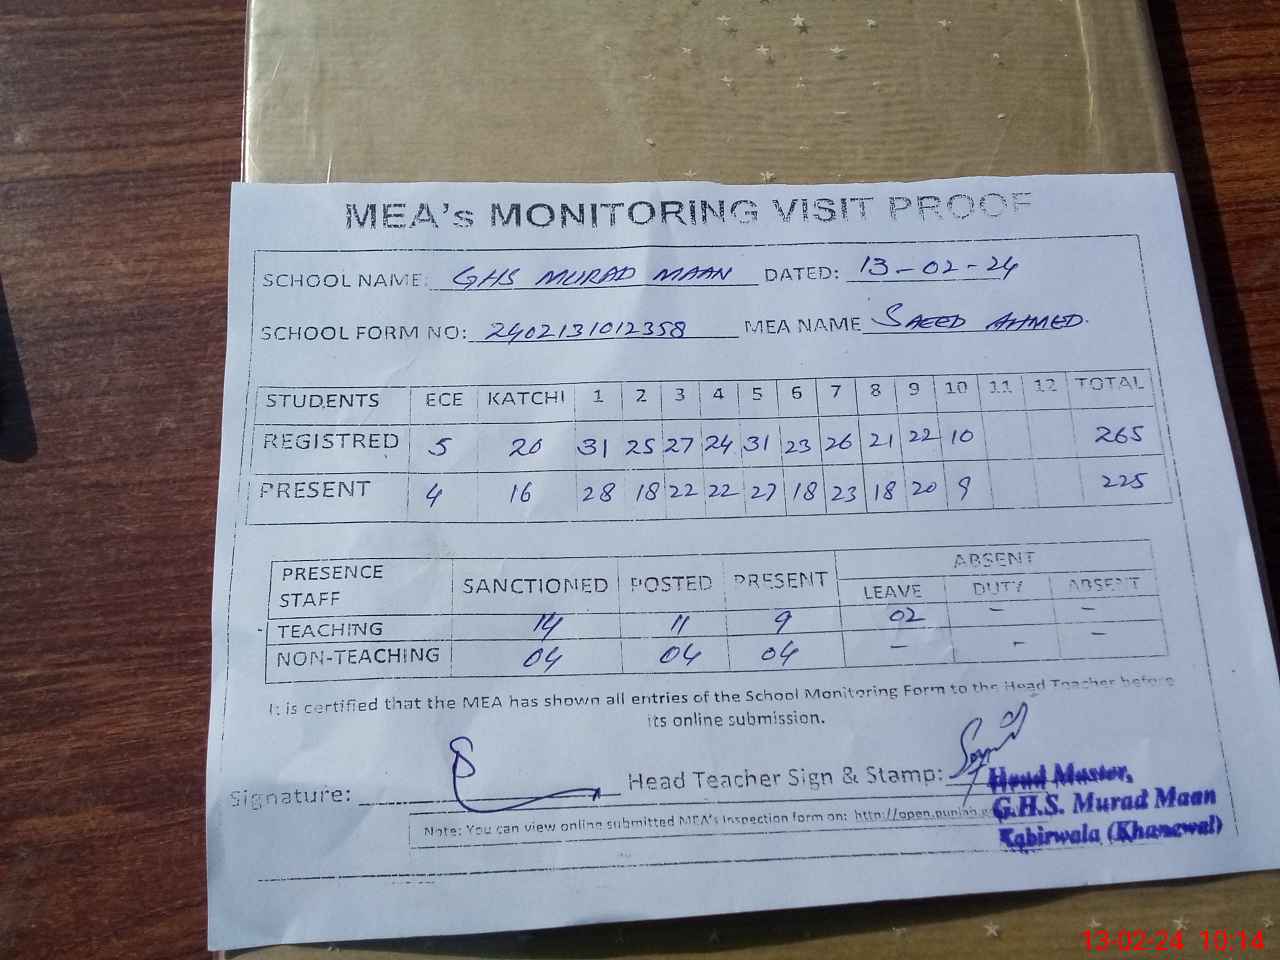 MEA's MONITORING VISIT PROOF
SCHOOL NAME: GHS MURAD MAAN DATED: 13-02-24
SCHOOL FORM NO: 2402131012358 MEA NAME SAEED AHMED.
STUDENTS ECE KATCHI 1 2 3 4 5 6 7 8 9 10 11 12 TOTAL
REGISTRED 5 20 31 25 27 24 31 23 26 21 22 10 265
PRESENT 4 16 28 18 22 22 27 18 23 18 20 9 225
PRESENCE STAFF SANCTIONED POSTED PRESENT ABSENT
LEAVE DUTY ABSENT
TEACHING 14 11 9 02 - -
NON-TEACHING 04 04 04 - - -
It is certified that the MEA has shown all entries of the School Monitoring Form to the Head Teacher before
its online submission.
Signature: Head Teacher Sign & Stamp:
Head Master,
G.H.S. Murad Maan
Kabirwala (Khanewal)
Note: You can view online submitted MEA's Inspection form on: http://open.punjab.g
13-02-24 10:14